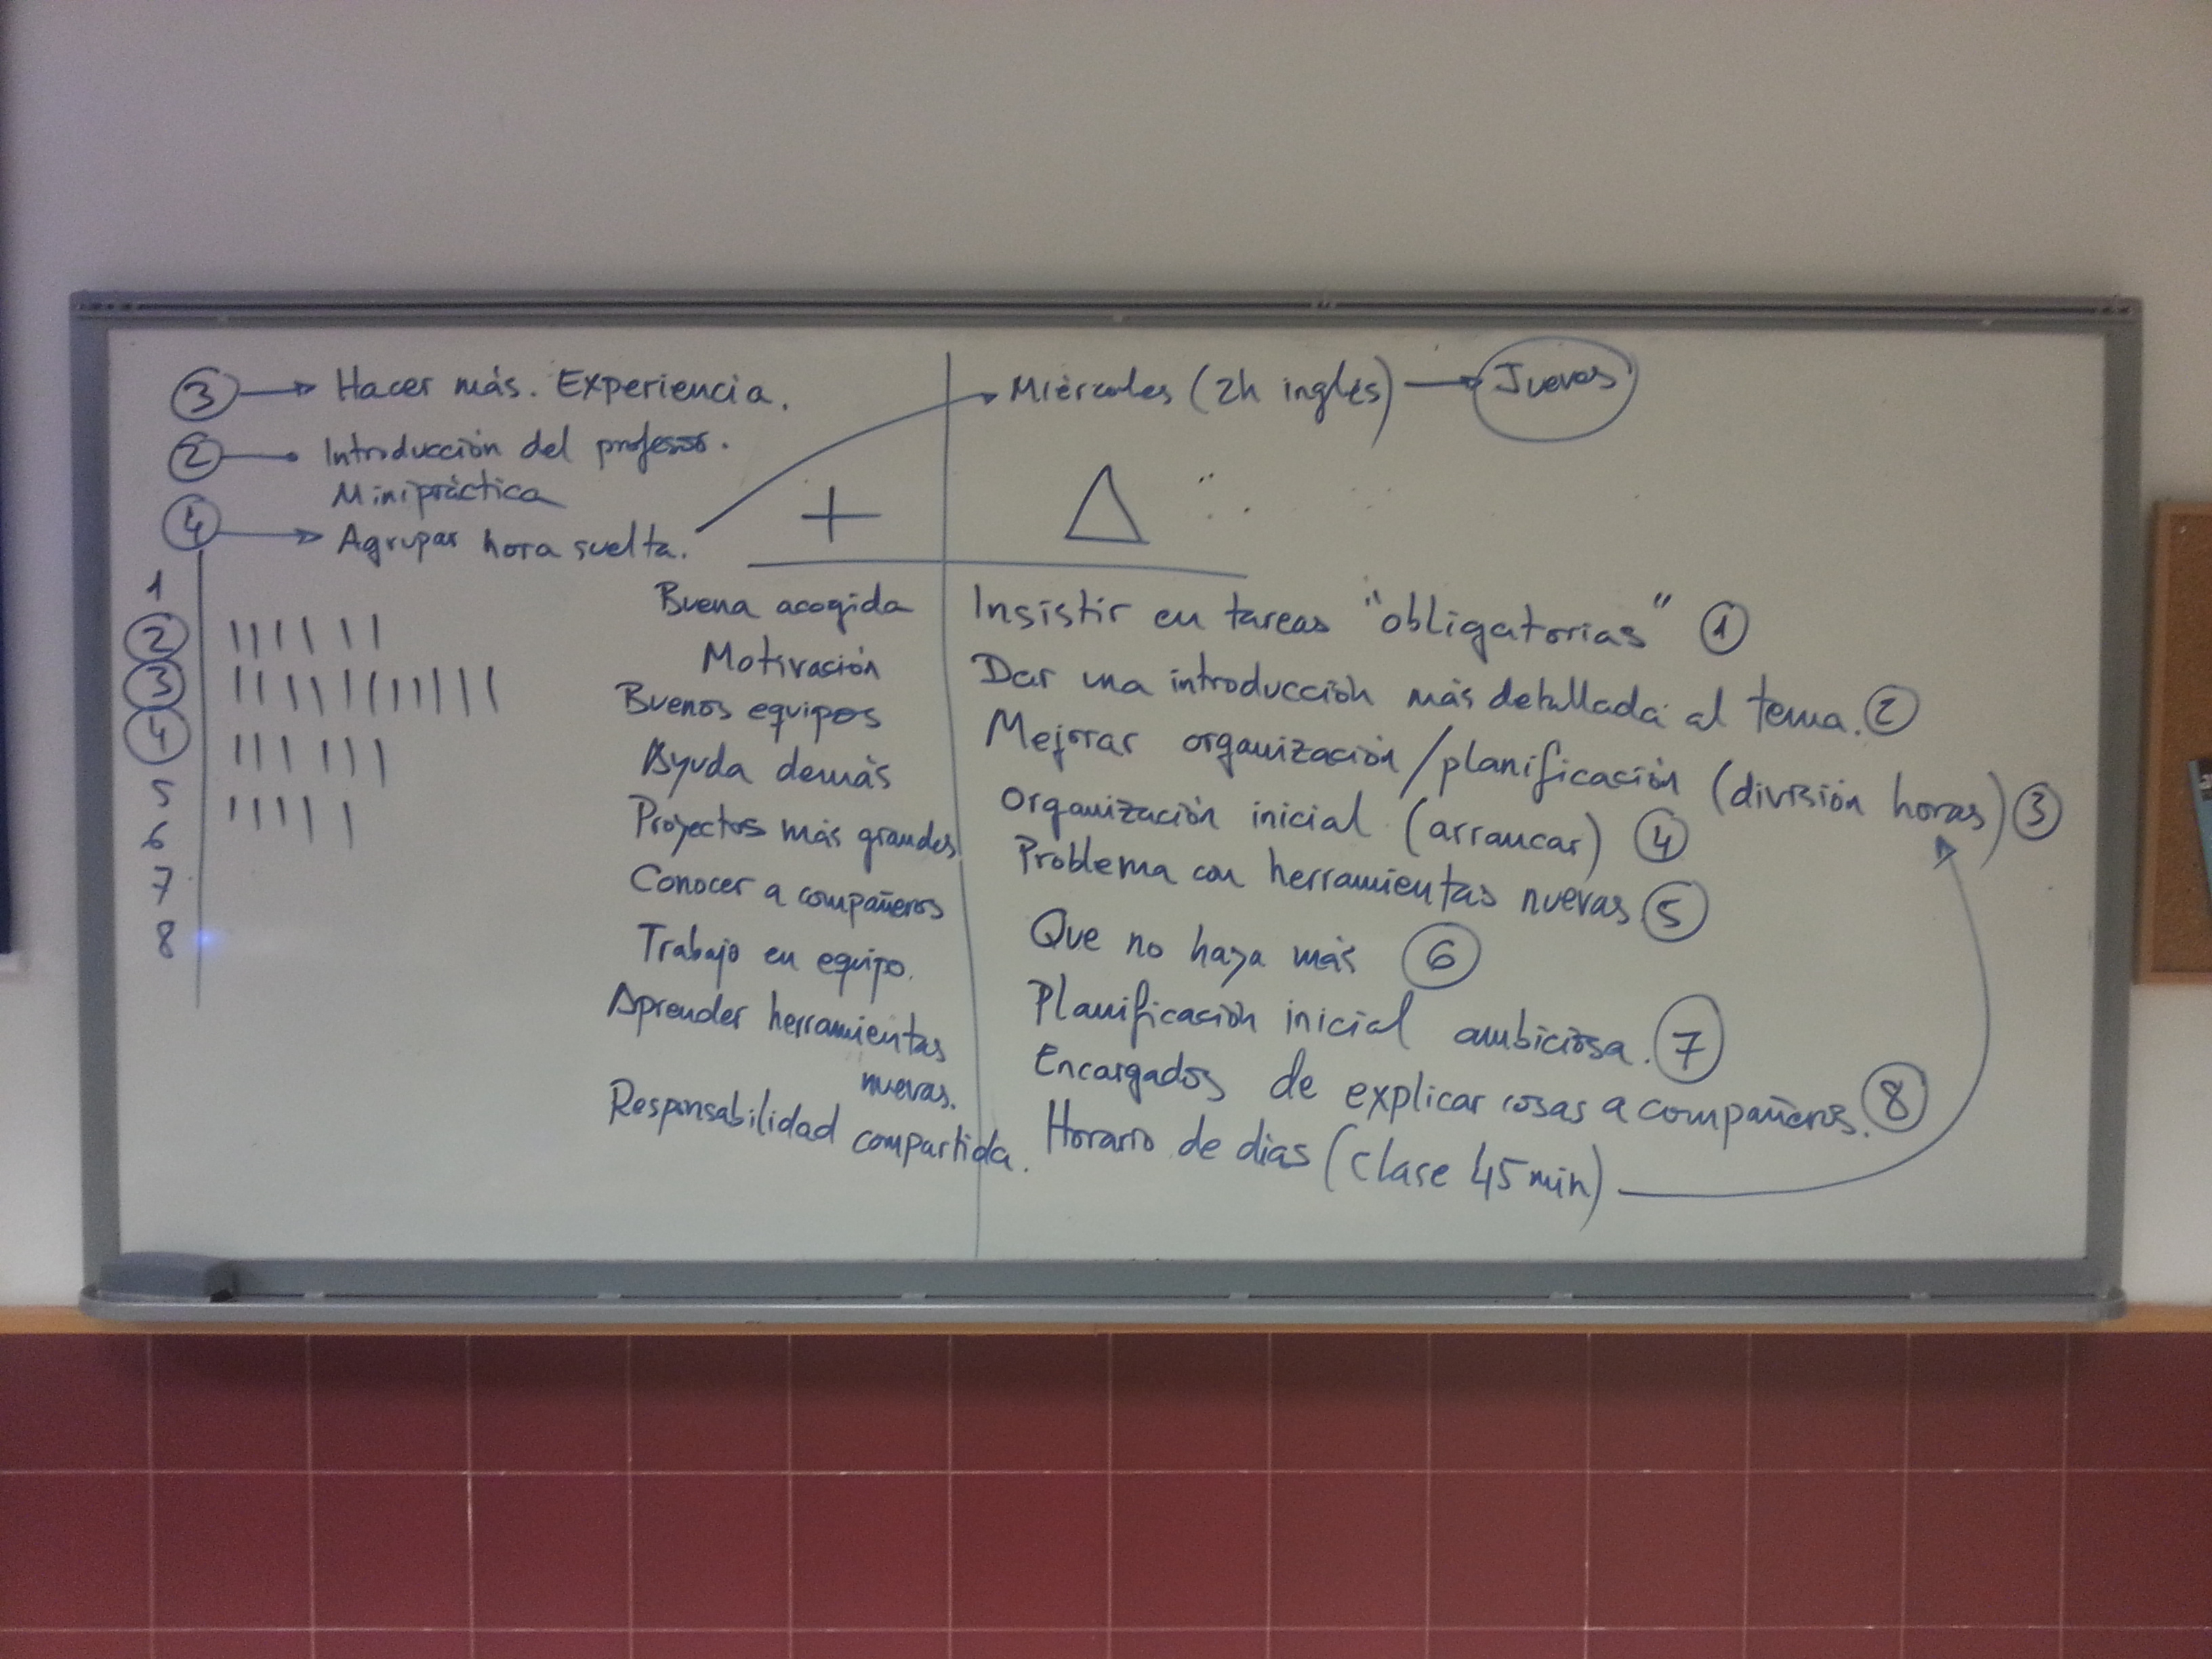 3 → Hacer más. Experiencia.
2 → Introducción del profesor.
Minipráctica
4 → Agrupar hora suelta.
Miércoles (2h inglés) → Jueves
+
△
1
2 IIIIII
3 IIIIIIIIIII
4 IIIIII
5 IIIII
6
7
8
Buena acogida
Motivación
Buenos equipos
Ayuda demás
Proyectos más grandes
Conocer a compañeros
Trabajo en equipo.
Aprender herramientas
nuevas.
Responsabilidad compartida.
Insistir en tareas "obligatorias" 1
Dar una introducción más detallada al tema. 2
Mejorar organización/planificación (división horas) 3
Organización inicial (arrancar) 4
Problema con herramientas nuevas 5
Que no haya más 6
Planificación inicial ambiciosa. 7
Encargados de explicar cosas a compañeros. 8
Horario de dias (clase 45 min)